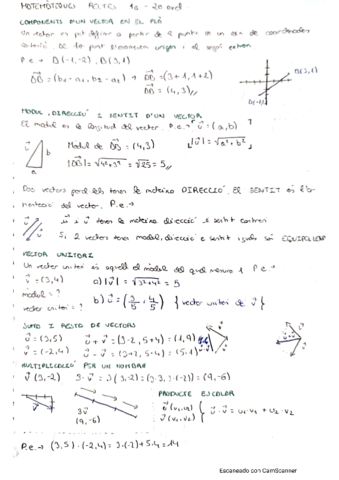 MATEMÀTIQUES
COMPONENTS D'UN VECTOR EN EL PLA
Un vector es pot definir a partir de 2 punts en un eix de coordenades
P.e → (-1,-2), B(3,1)
= (b₁-a₁, b₂-a₂) → = (3+1, 1+2)
= (4,3)
B(3,1)
MODUL, DIRECCIÓ I SENTIT D'UN VECTOR
El modul es la longitud del vector. P.e. → u = (a,b)
|u| = √a²+b²
Modul de = (4,3)
= √4²+3² = √25 = 5
b
a
Dos vectors paral·lels tenen la mateixa DIRECCIÓ. El SENTIT és
del vector. P.e. →
tenen la mateixa direcció i sentit contrari
Si 2 vectors tenen modul, direcció i sentit iguals són
VECTOR UNITARI
Un vector unitari és aquell el mòdul del qual mesura 1 P.e →
v = (3,4) a) |v| = √3²+4² = 5
modul = ?
vector unitari = ? b) u = (3/5, 4/5) { vector unitari de v }
SUMA I RESTA DE VECTORS
u = (3,5) u + v = (3-2, 5+4) = (1,9)
v = (-2,4) u - v = (3+2, 5-4) = (5,1)
MULTIPLICACIÓ PER UN NOMBRE
v (3,-2) 3·v = 3(3,-2) = (3·3, 3·(-2)) = (9,-6)
PRODUCTE ESCALAR
3v
(9,-6)
u (u₁,u₂)
v (v₁,v₂)
u · v = u₁·v₁ + u₂·v₂
P.e → (3,5)·(-2,4) = 3·(-2)+5·4 = 14
Escaneado con CamScanner